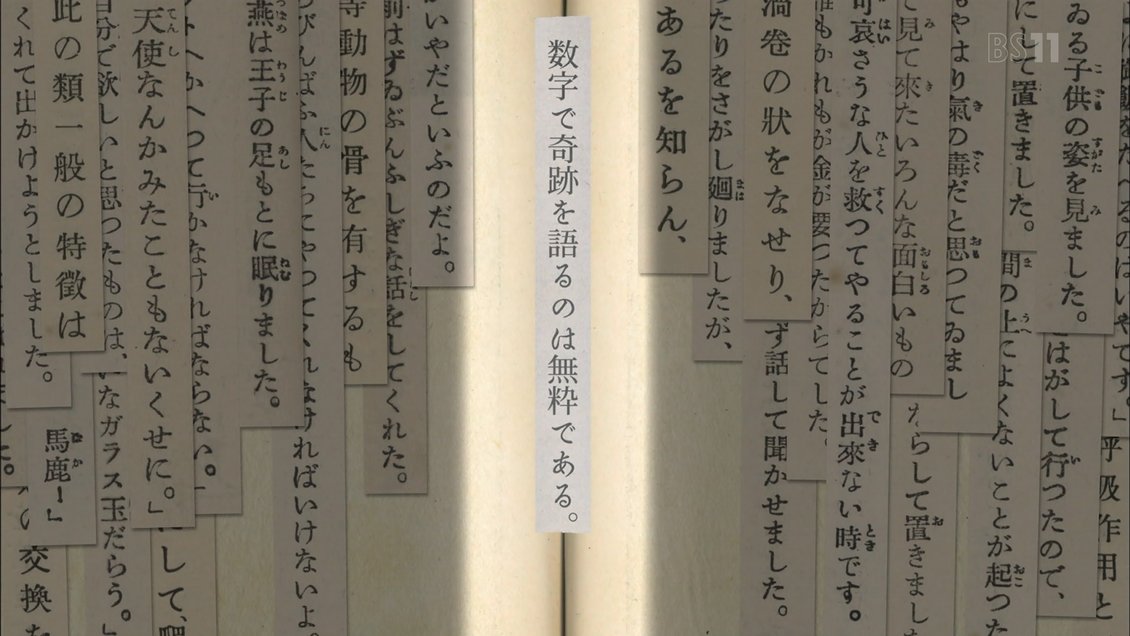 BS11
ゐる子供の姿を見ました。
にして置きました。
間の上によくないことが起つた
はがして行つたので、
呼吸作用と
もやはり氣の毒だと思つてゐまし
て見て來たいろんな面白いもの
ならして置きまし
可哀さうな人を救つてやることが出來ない時です。
誰もかれもが金が要つたからでした。
渦卷の狀をなせり、
ず話して聞かせました。
たりをさがし廻りましたが、
あるを知らん、
数字で奇跡を語るのは無粋である。
いやだといふのだよ。
前はずゐぶんふしぎな話をしてくれた。
等動物の骨を有するも
ければいけないよ。
燕は王子の足もとに眠りました。
行かなければならない。
天使なんかみたこともないくせに。」
して、
自分で欲しいと思つたものは、
なガラス玉だらう。」
此の類一般の特徴は
馬鹿!」
くれて出かけようとしました。
交換